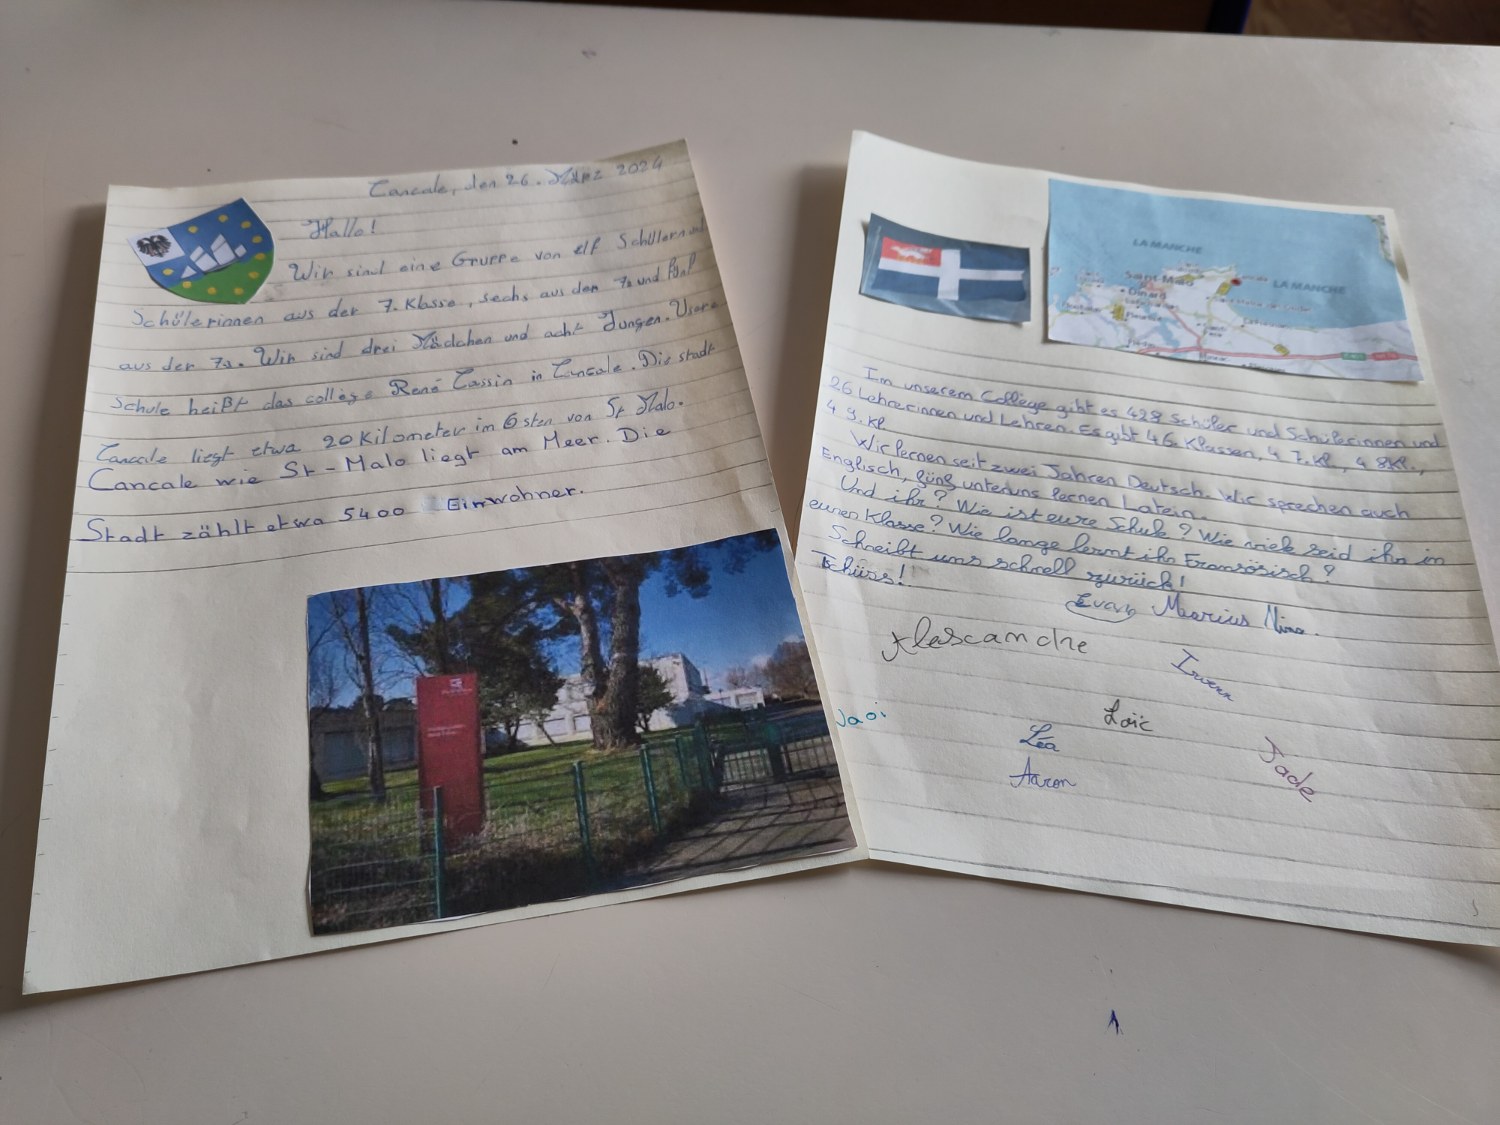 Cancale, den 26. März 2024
Hallo!
Wir sind eine Gruppe von elf Schülern und
Schülerinnen aus der 7. Klasse, sechs aus der 7s und fünf
aus der 7a. Wir sind drei Mädchen und acht Jungen. Usere
Schule heißt das collège René Cassin in Cancale. Die stadt
Cancale liegt etwa 20 Kilometer im Osten von St Malo.
Cancale wie St-Malo liegt am Meer. Die
Stadt zählt etwa 5400 Einwohner.
LA MANCHE
Saint-Malo
LA MANCHE
Dinard
Im unserem Collège gibt es 428 Schüler und Schülerinnen und
26 Lehrerinnen und Lehren. Es gibt 16 Klassen, 4 7. Kl., 4 8Kl.,
4 9. Kl
Wir lernen seit zwei Jahren Deutsch. Wir sprechen auch
Englisch, fünf unter uns lernen Latein.
Und ihr? Wie ist eure Schule? Wie viele seid ihr in
eurer Klasse? Wie lange lernt ihr Französisch?
Schreibt uns schnell zurück!
Tchüss!
Marius Nino.
Irwen
Loïc
Jade
Léa
Aaron